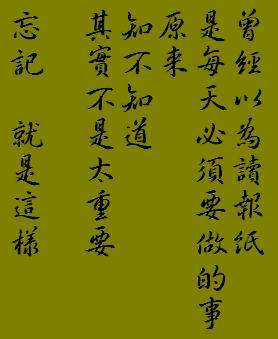 曾經以為讀報紙
是每天必須要做的事
原来
知不知道
其實不是太重要
忘記 就是這樣